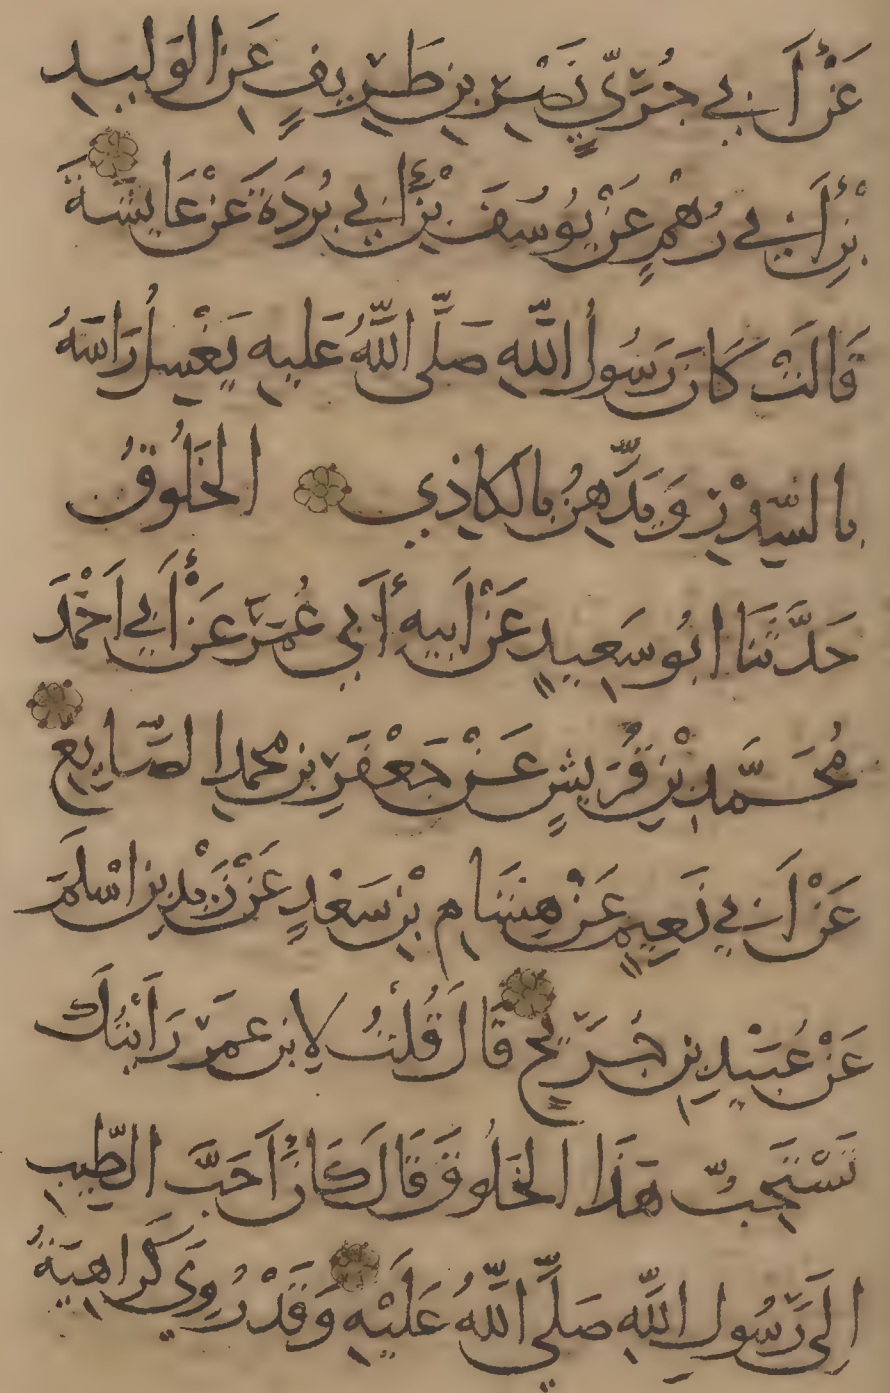 عَنْ أَبِي جُزَيٍّ نَصْرِ بنِ طَرِيفٍ عَنِ الوَلِيدِ
بْنِ أَبِي رُهْمٍ عَنْ يُوسُفَ بْنِ أَبِي بُرْدَةَ عَنْ عَايِشَةَ
قَالَتْ كَانَ رَسُولُ اللَّهِ صَلَّى اللَّهُ عَلَيهِ يَغْسِلُ رَاسَهُ
بِالسِّدْرِ وَيَدَّهِنُ بِالكَاذِي الخَلُوقُ
حَدَّثَنَا ابُو سَعِيدٍ عَنْ أَبِيهِ أَبِي عُمَرَ عَنْ أَبِي أَحْمَدَ
مُحَمَّدِ بْنِ قُرَيشٍ عَنْ جَعْفَرِ بنِ محمد الصَّايِغِ
عَنْ أَبِي نَعِيمٍ عَنْ هِشَامِ بْنِ سَعْدٍ عَنْ زَيْدِ بنِ اسْلَمَ
عَنْ عُبَيْدِ بنِ جُرَيجٍ قَالَ قُلْتُ لِابنِ عمَرَ رَأَيْتُكَ
تَسْتَحِبُّ هَذَا الخَلُوقَ قَالَ كَانَ أَحَبَّ الطِّيبِ
إِلَى رَسُولِ اللَّهِ صَلَّى اللَّهُ عَلَيْهِ وَقَدْ رُوِيَ كَرَاهِيَةُ